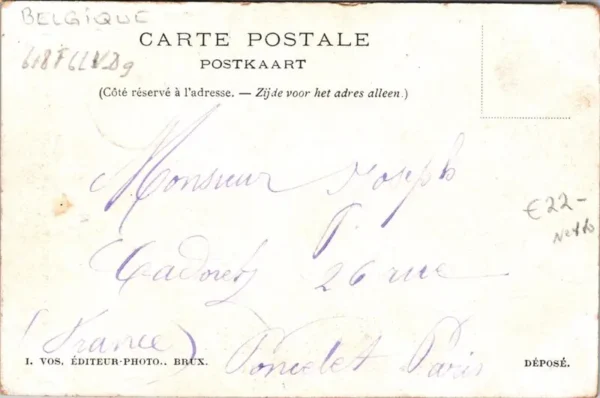 BELGIQUE
CARTE POSTALE
POSTKAART
(Côté réservé à l'adresse. — Zijde voor het adres alleen.)
Monsieur Joseph
€22-
Netto
26 rue
(France) Poncelet Paris
I. VOS. ÉDITEUR-PHOTO.. BRUX.
DÉPOSÉ.